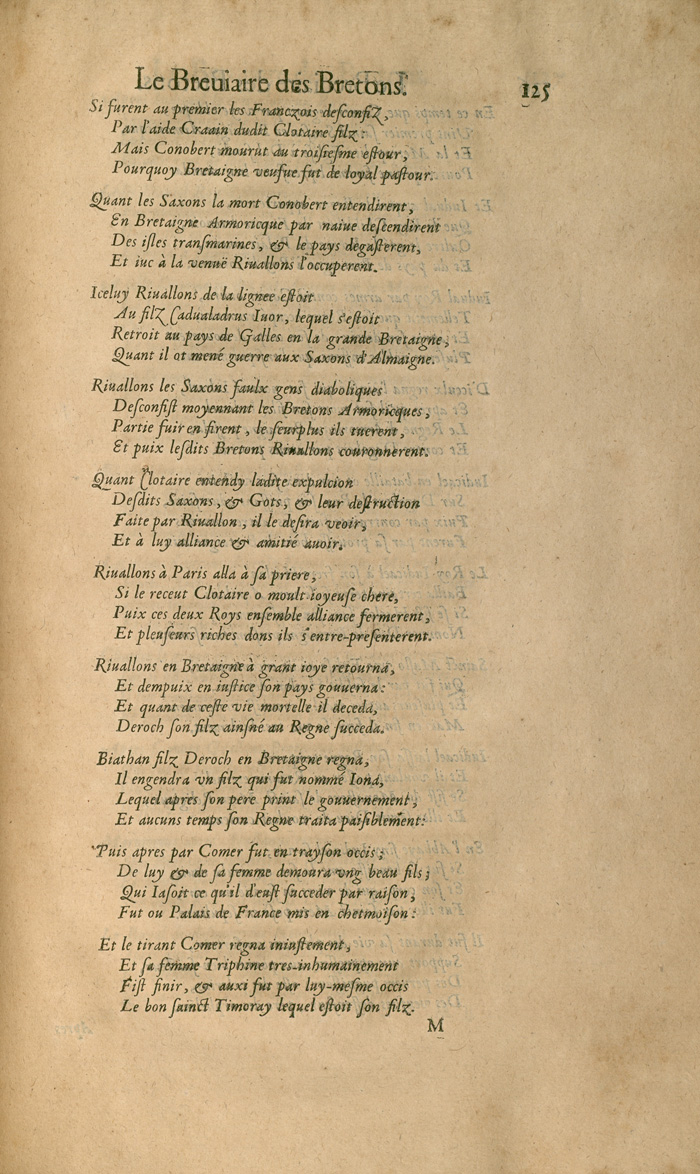 Le Breuiaire des Bretons. 125
Si furent au premier les Franczois desconfiz,
Par l'aide Craain dudit Clotaire filz:
Mais Conobert mourut au troisiesme estour,
Pourquoy Bretaigne veufue fut de loyal pastour.
Quant les Saxons la mort Conobert entendirent,
En Bretaigne Armoricque par naiue descendirent
Des isles transmarines, & le pays degasterent,
Et iuc à la venuë Riuallons l'occuperent.
Iceluy Riuallons de la lignee estoit
Au filz Cadualadrus Iuor, lequel s'estoit
Retroit au pays de Galles en la grande Bretaigne,
Quant il ot mené guerre aux Saxons d'Almaigne.
Riuallons les Saxons faulx gens diaboliques
Desconfist moyennant les Bretons Armoricques,
Partie fuir en firent, le seurplus ils tuerent,
Et puix lesdits Bretons Riuallons couronnerent.
Quant Clotaire entendy ladite expulcion
Desdits Saxons, & Gots, & leur destruction
Faite par Riuallon, il le desira veoir,
Et à luy alliance & amitié auoir.
Riuallons à Paris alla à sa priere,
Si le receut Clotaire o moult ioyeuse chere,
Puix ces deux Roys ensemble alliance fermerent,
Et pleuseurs riches dons ils s'entre-presenterent.
Riuallons en Bretaigne à grant ioye retourna,
Et dempuix en iustice son pays gouuerna:
Et quant de ceste vie mortelle il deceda,
Deroch son filz ainsné au Regne succeda.
Biathan filz Deroch en Bretaigne regna,
Il engendra vn filz qui fut nommé Iona,
Lequel apres son pere print le gouuernement,
Et aucuns temps son Regne traita paisiblement:
Puis apres par Comer fut en trayson occis;
De luy & de sa femme demoura vng beau fils;
Qui Iasoit ce qu'il d'eust succeder par raison,
Fut ou Palais de France mis en chetmoison:
Et le tirant Comer regna iniustement,
Et sa femme Triphine tres-inhumainement
Fist finir, & auxi fut par luy-mesme occis
Le bon sainct Timoray lequel estoit son filz.
M